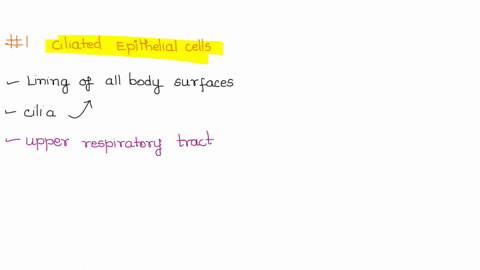 #1 Ciliated Epithelial cells
- Lining of all body surfaces
- cilia
- upper respiratory tract